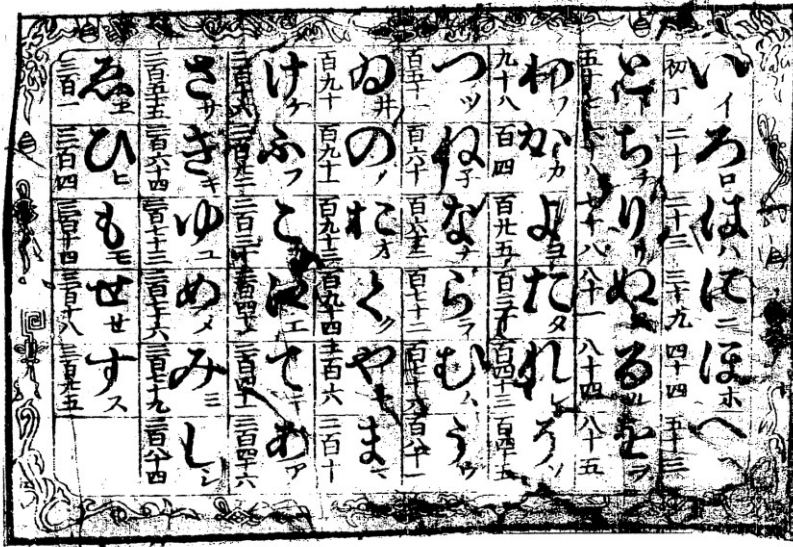 いイ ろロ はハ にニ ほホ へヘ
初丁 二十 二十三 三十九 四十四 五十三
とト ちチ りリ ぬヌ るル をヲ
六十八 七十八 八十一 八十四 八十五
わワ かカ よヨ たタ れレ そソ
九十八 百四 百廿五 百四十三 百四十五
つツ ね子 なナ らラ むム うウ
百五十一 百六十 百六十三 百七十二 百七十六 百八十一
ゐ井 のノ おオ くク やヤ まマ
百九十 百九十一 百九十三 百九十四 二百六 二百十
けケ ふフ こコ えエ てテ あア
二百十六 二百三十 二百四十一 二百四十六
さサ きキ ゆユ めメ みミ しシ
二百五十五 二百六十四 二百七十三 二百七十六 二百七十九 二百八十四
ゑヱ ひヒ もモ せセ すス
三百一 三百四 三百十四 三百十八 三百廿五